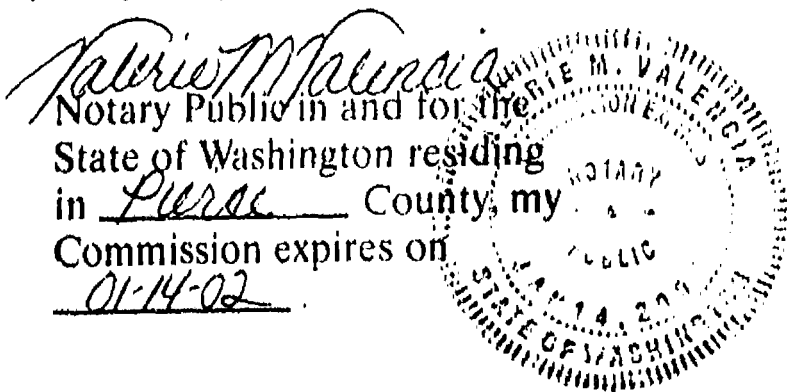 Valerie M Valencia
Notary Public in and for the
State of Washington residing
in Pierce County, my
Commission expires on
01-14-02.
RIE M. VALENCIA
ION EXPIRES
NOTARY
PUBLIC
JAN 14, 200
STATE OF WASHINGTON